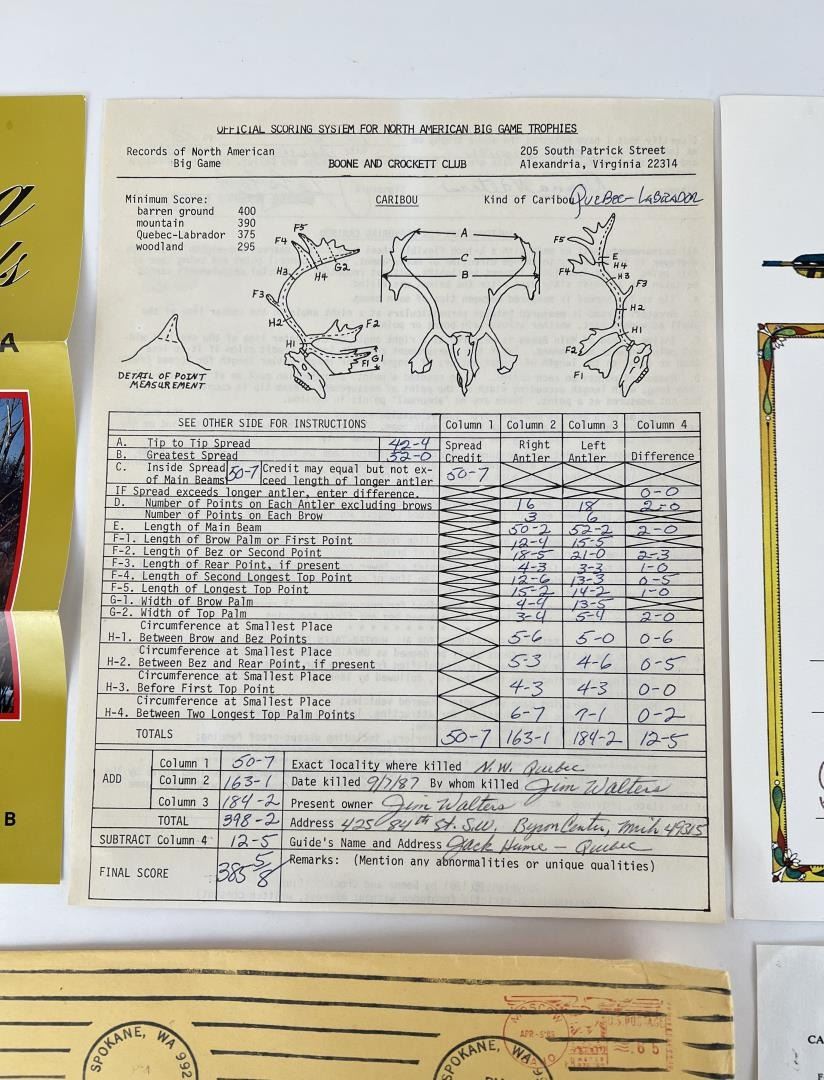 OFFICIAL SCORING SYSTEM FOR NORTH AMERICAN BIG GAME TROPHIES
Records of North American
Big Game
BOONE AND CROCKETT CLUB
205 South Patrick Street
Alexandria, Virginia 22314
Minimum Score:
barren ground 400
mountain 390
Quebec-Labrador 375
woodland 295
CARIBOU
Kind of Caribou QUEBEC-LABRADOR
F5
F4
G2
H3
H4
F3
H2
F2
H1
F1
G1
A
C
B
F5
E
H4
F4
H3
F3
H2
H1
F2
F1
DETAIL OF POINT
MEASUREMENT
SEE OTHER SIDE FOR INSTRUCTIONS Column 1 Column 2 Column 3 Column 4
A. Tip to Tip Spread 42-4 Spread Credit Right Antler Left Antler Difference
B. Greatest Spread 52-0
C. Inside Spread of Main Beams 50-7 Credit may equal but not exceed length of longer antler 50-7
IF Spread exceeds longer antler, enter difference. 0-0
D. Number of Points on Each Antler excluding brows 16 18 2-0
Number of Points on Each Brow 3 6
E. Length of Main Beam 50-2 52-2 2-0
F-1. Length of Brow Palm or First Point 12-4 15-5
F-2. Length of Bez or Second Point 18-5 21-0 2-3
F-3. Length of Rear Point, if present 4-3 3-3 1-0
F-4. Length of Second Longest Top Point 12-6 13-3 0-5
F-5. Length of Longest Top Point 15-2 14-2 1-0
G-1. Width of Brow Palm 4-4 13-5
G-2. Width of Top Palm 3-4 5-4 2-0
Circumference at Smallest Place
H-1. Between Brow and Bez Points 5-6 5-0 0-6
Circumference at Smallest Place
H-2. Between Bez and Rear Point, if present 5-3 4-6 0-5
Circumference at Smallest Place
H-3. Before First Top Point 4-3 4-3 0-0
Circumference at Smallest Place
H-4. Between Two Longest Top Palm Points 6-7 7-1 0-2
TOTALS 50-7 163-1 184-2 12-5
ADD
Column 1 50-7 Exact locality where killed N.W. Quebec
Column 2 163-1 Date killed 9/7/87 By whom killed Jim Walters
Column 3 184-2 Present owner Jim Walters
TOTAL 398-2 Address 425 84th St. S.W. Byron Center, Mich 49315
SUBTRACT Column 4 12-5 Guide's Name and Address Jack Hume - Quebec
FINAL SCORE 385 5/8 Remarks: (Mention any abnormalities or unique qualities)
A
B
SPOKANE, WA 992
SPOKANE, WA 99
APR-5'88
U.S. POSTAGE
CA